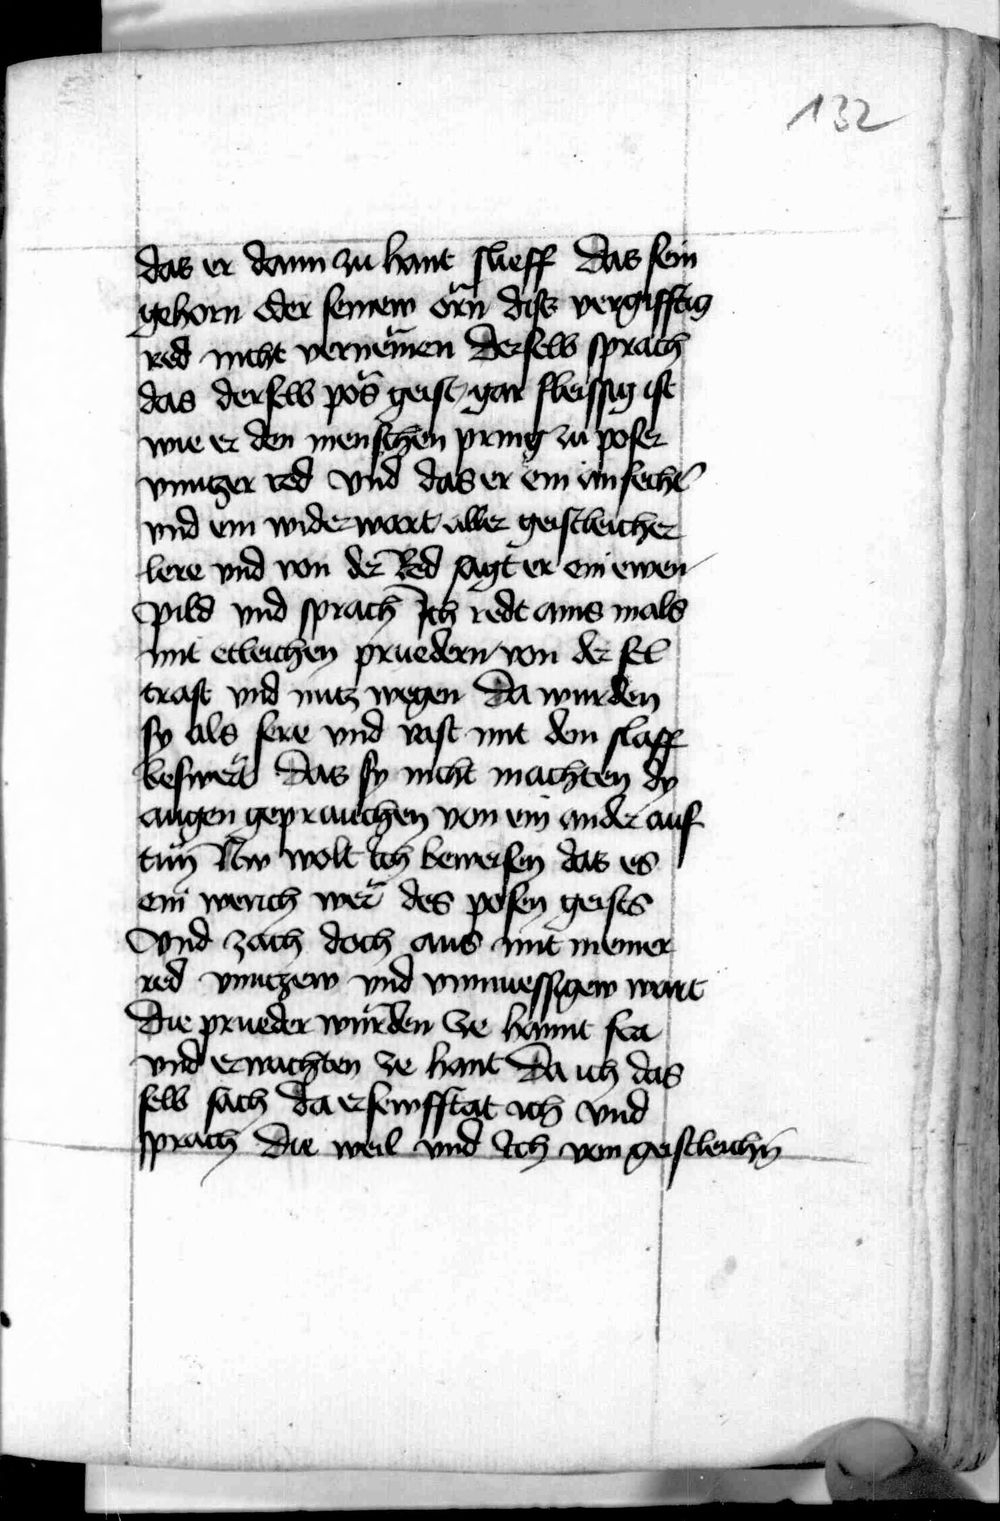 132
das er dann zu hant slieff Das sein
gehorn oder seinew örn disz vergifftig
red nicht vernëmen Derselb sprach
das derselb pös geist gar fleissig ist
wie er den menschen pring zu poser
vnnutzer red Vnd das er ein anfecht̕
vnd ein widerwart aller geistleicher
lere vnd von der Red sagt er ein ewen
pild vnd sprach Ich redt ains mals
mit etleichen pruedern von der sel
trast vnd nutz wegen Da wurden
sy als sere vnd vast mit dem slaff
beswërt Das sy nicht machten dy
augen geprauchen von ein ander auf
tün Nw wolt Ich beweisen das es
ein werich wër des posen geists
Vnd zach doch aus mit meiner
red vnnutzew vnd vnmuessigew wart
Die prueder würden ze hannt fra
vnd erwachten ze hant Da ich das
selb sach Da ersewfftat ich vnd
sprach Die weil vnd Ich von geistleichn̄